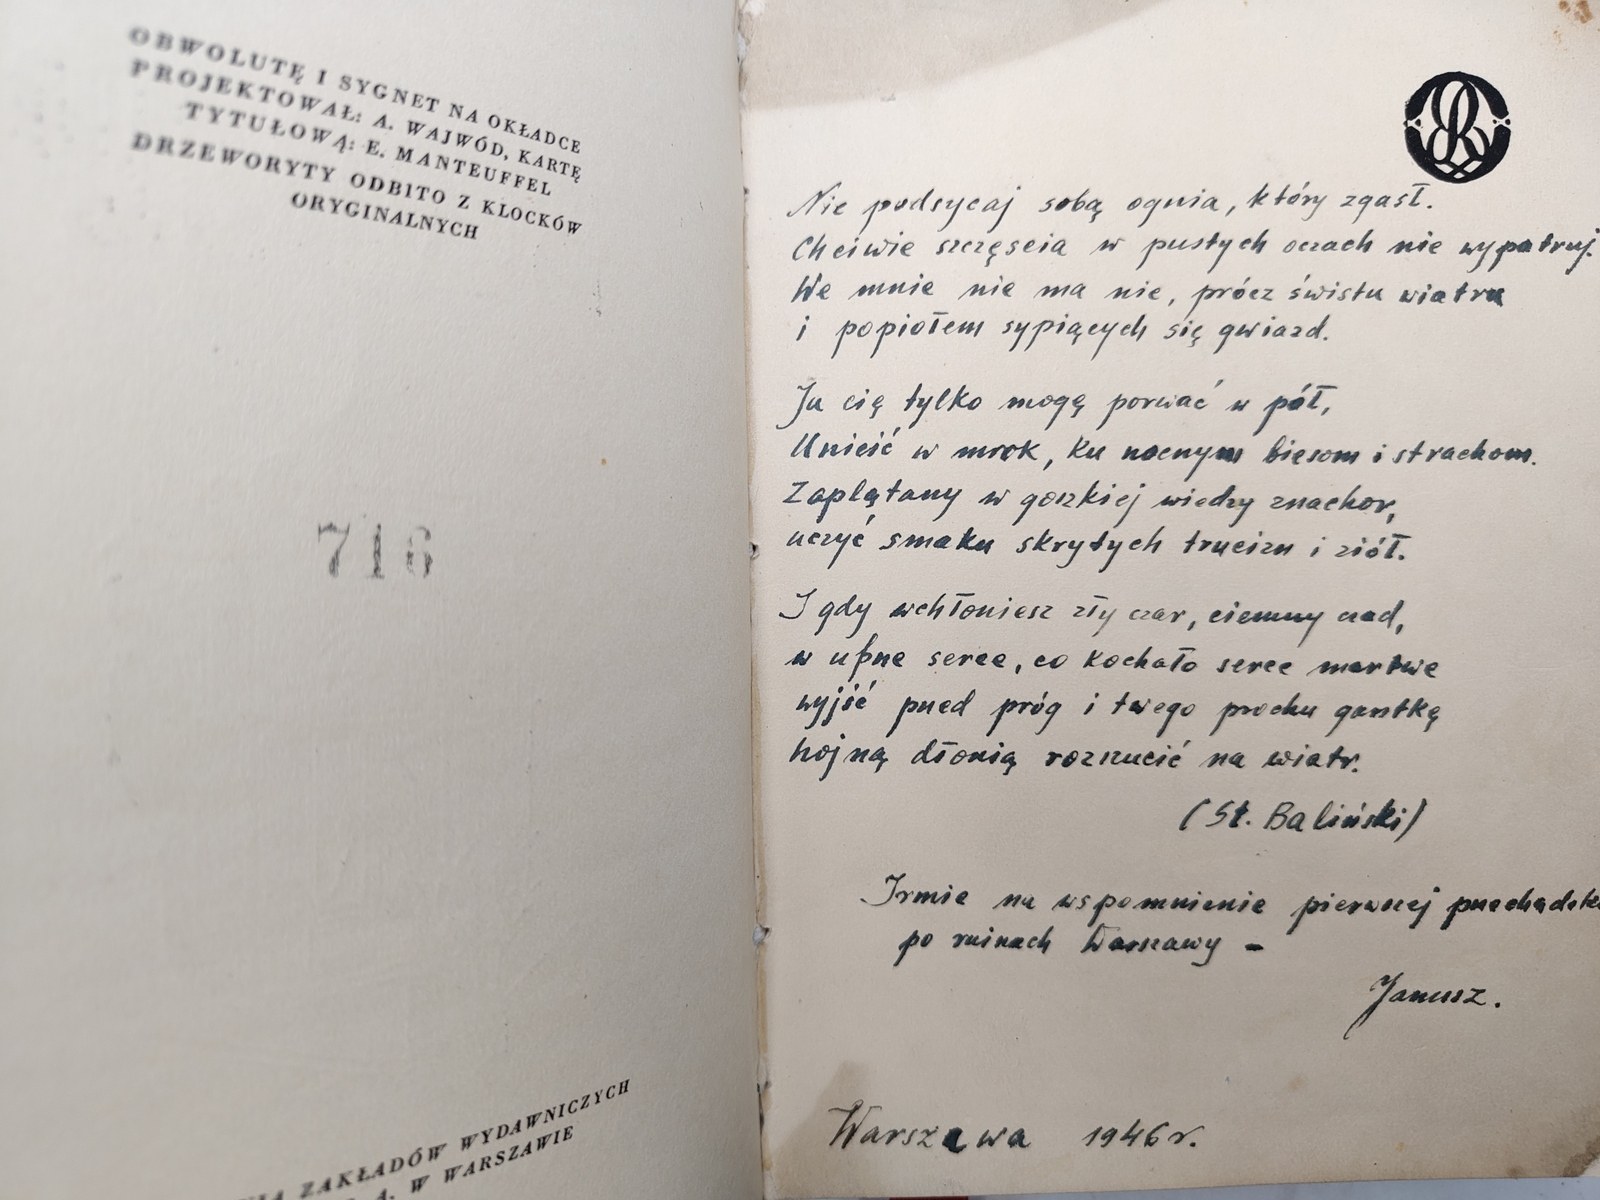 OBWOLUTĘ I SYGNET NA OKŁADCE
PROJEKTOWAŁ: A. WAJWÓD, KARTĘ
TYTUŁOWĄ: E. MANTEUFFEL
DRZEWORYTY ODBITO Z KLOCKÓW
ORYGINALNYCH
716
ZAKŁADÓW WYDAWNICZYCH
A. W WARSZAWIE
Nie podsycaj sobą ognia, który zgasł.
Chciwie szczęścia w pustych oczach nie wypatruj.
We mnie nie ma nic, prócz świstu wiatru
i popiołem sypiących się gwiazd.
Ja cię tylko mogę porwać w pół,
Unieść w mrok, ku nocnym biesom i strachom.
Zaplątany w gorzkiej wiedzy znachor,
uczyć smaku skrytych trucizn i ziół.
I gdy wchłoniesz zły czar, ciemny czad,
w ufne serce, co kochało serce martwe
wyjść przed próg i twego prochu garstkę
hojną dłonią rozrzucić na wiatr.
(St. Baliński)
Irmie na wspomnienie pierwszej
po ruinach Warszawy –
Janusz.
Warszawa 1946 r.